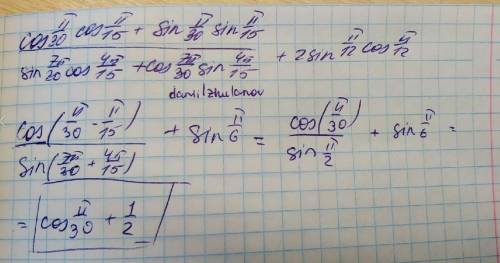 cos π/30 cos π/15 + sin π/30 sin π/15
sin 7π/30 cos 4π/15 + cos 7π/30 sin 4π/15 + 2 sin π/12 cos π/12
danilzhulanov
cos(π/30 - π/15)
sin(7π/30 + 4π/15) + sin π/6 = cos(π/30) / sin π/2 + sin π/6 =
= cos π/30 + 1/2